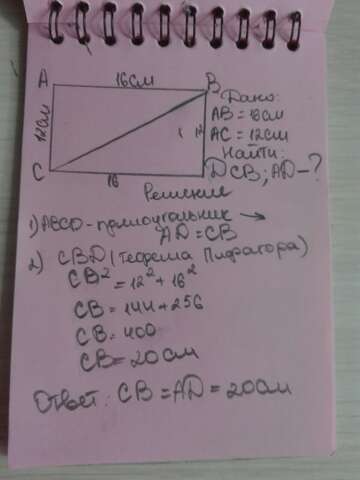 A 16см B
12см 12
C 16 D
Дано:
AB = 16см
AC = 12см
Найти:
CB; AD - ?
Решение
1) ABCD - прямоугольник →
AD = CB
2) CBD (теорема Пифагора)
CB² = 12² + 16²
CB = 144 + 256
CB = 400
CB = 20см
Ответ: CB = AD = 20см